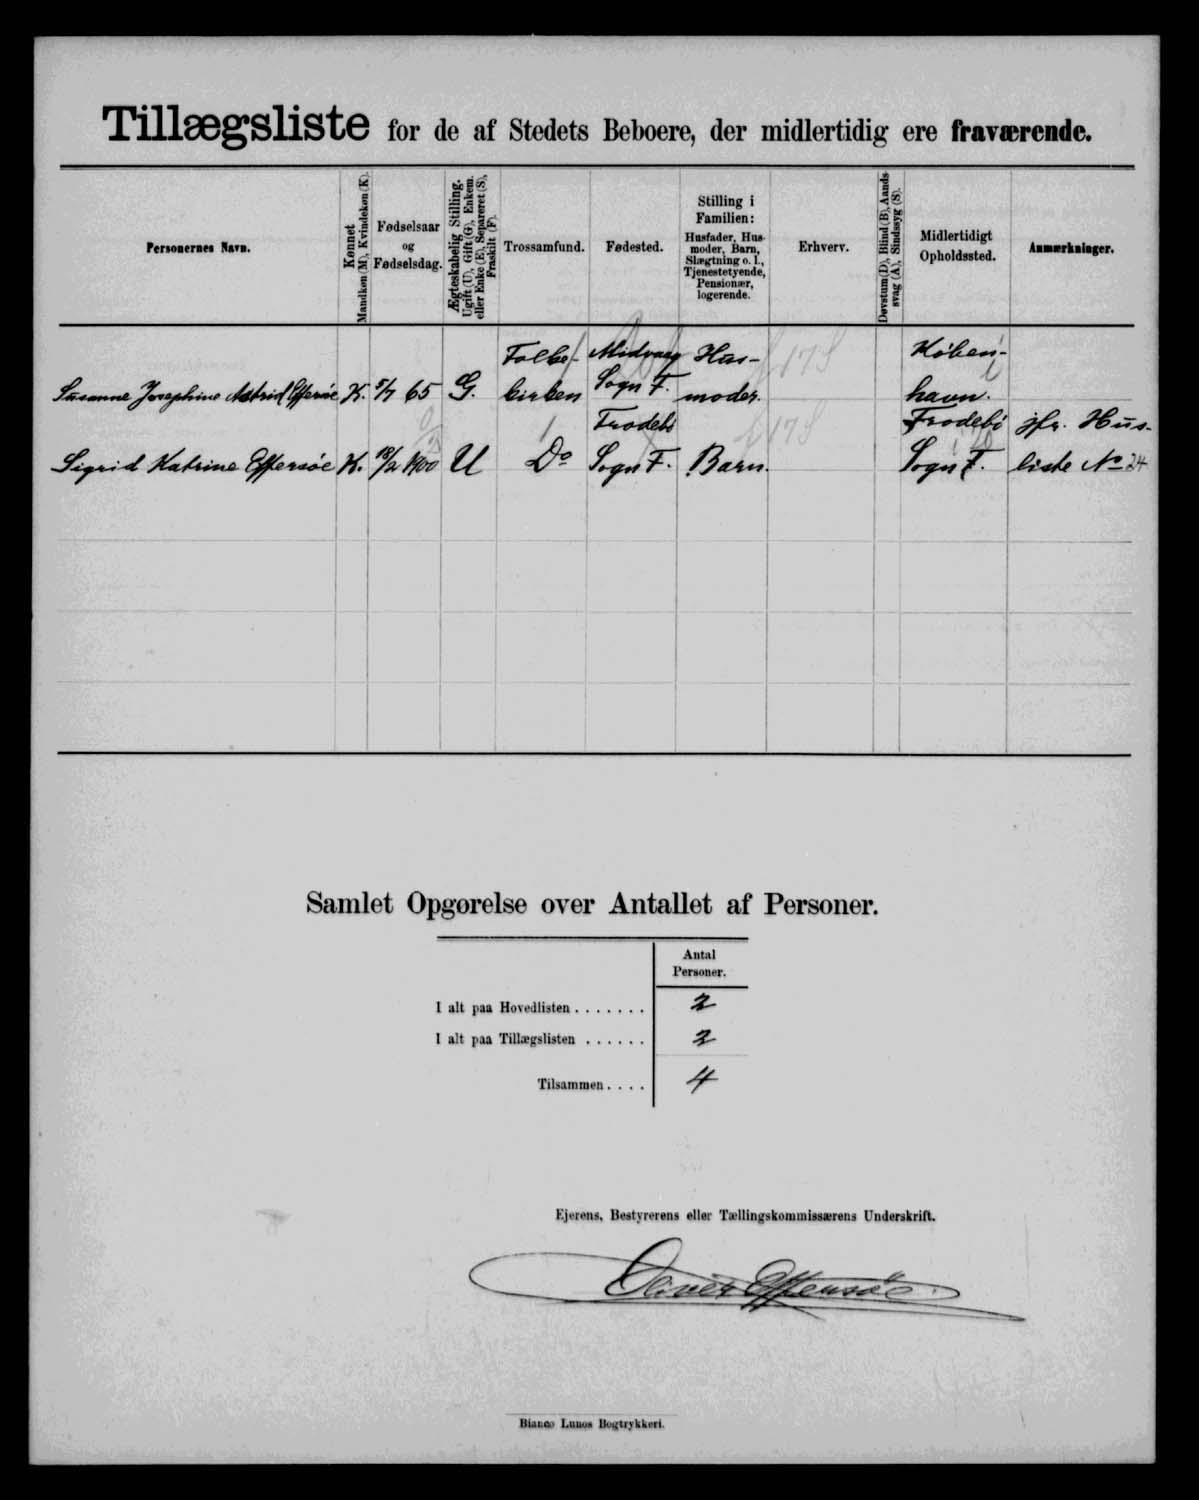 Tillægsliste for de af Stedets Beboere, der midlertidig ere fraværende.
Personernes Navn.
Kønnet
Mandkøn (M), Kvindekøn (K).
Fødselsaar
og
Fødselsdag.
Ægteskabelig Stilling.
Ugift (U), Gift (G), Enkem.
eller Enke (E), Separeret (S),
Fraskilt (F).
Trossamfund.
Fødested.
Stilling i
Familien:
Husfader, Hus-
moder, Barn,
Slægtning o. l.,
Tjenestetyende,
Pensionær,
logerende.
Erhverv.
Døvstum (D), Blind (B), Aands-
svag (A), Sindssyg (S).
Midlertidigt
Opholdssted.
Anmærkninger.
Folke- Midvaag Hus- Køben-
Susanne Josephine Astrid Effersøe K. 5/7 65 G. kirken Sogn F. moder. havn.
Frodebø Frodebø jfr. Hus-
Sigrid Katrine Effersøe K. 18/2 1900 U Do Sogn F. Barn. Sogn F. liste No 24
Samlet Opgørelse over Antallet af Personer.
Antal
Personer.
I alt paa Hovedlisten . . . . . . . 2
I alt paa Tillægslisten . . . . . . 2
Tilsammen . . . . 4
Ejerens, Bestyrerens eller Tællingskommissærens Underskrift.
Oliver Effersøe
Bianco Lunos Bogtrykkeri.